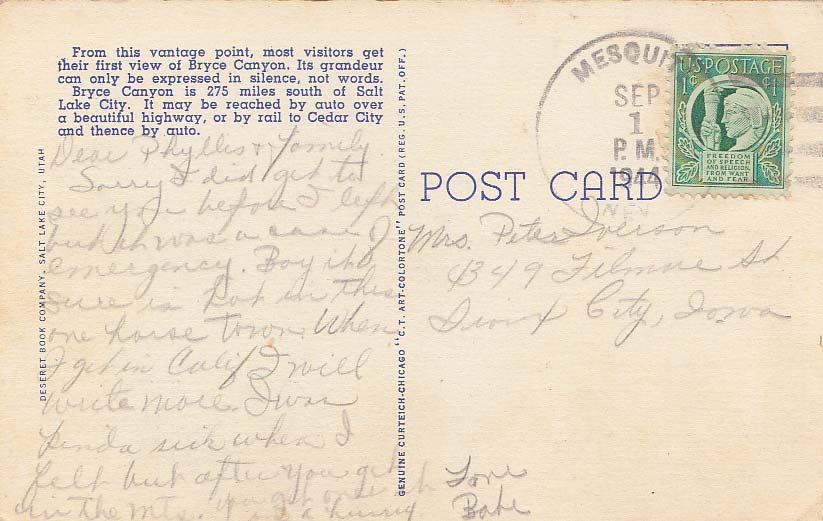 From this vantage point, most visitors get
their first view of Bryce Canyon. Its grandeur
can only be expressed in silence, not words.
Bryce Canyon is 275 miles south of Salt
Lake City. It may be reached by auto over
a beautiful highway, or by rail to Cedar City
and thence by auto.
Dear Phyllis & family
Sorry I did get to
see you before I left
but it was a case of
emergency. Boy it
sure is hot in this
one horse town. When
I get in Calif I will
write more. I was
kinda sick when I
left but after you get
in the Mts. you get over it
in a hurry.
Love
Babe
DESERET BOOK COMPANY, SALT LAKE CITY, UTAH
GENUINE CURTEICH-CHICAGO "C.T. ART-COLORTONE" POST CARD (REG. U.S. PAT. OFF.)
POST CARD
MESQUIT
SEP
1
P.M.
1944
NEV
U.S. POSTAGE
1¢ ¢1
FREEDOM
OF SPEECH
AND RELIGION,
FROM WANT
AND FEAR
Mrs. Peter Iverson
4349 Filmore St
Sioux City, Iowa